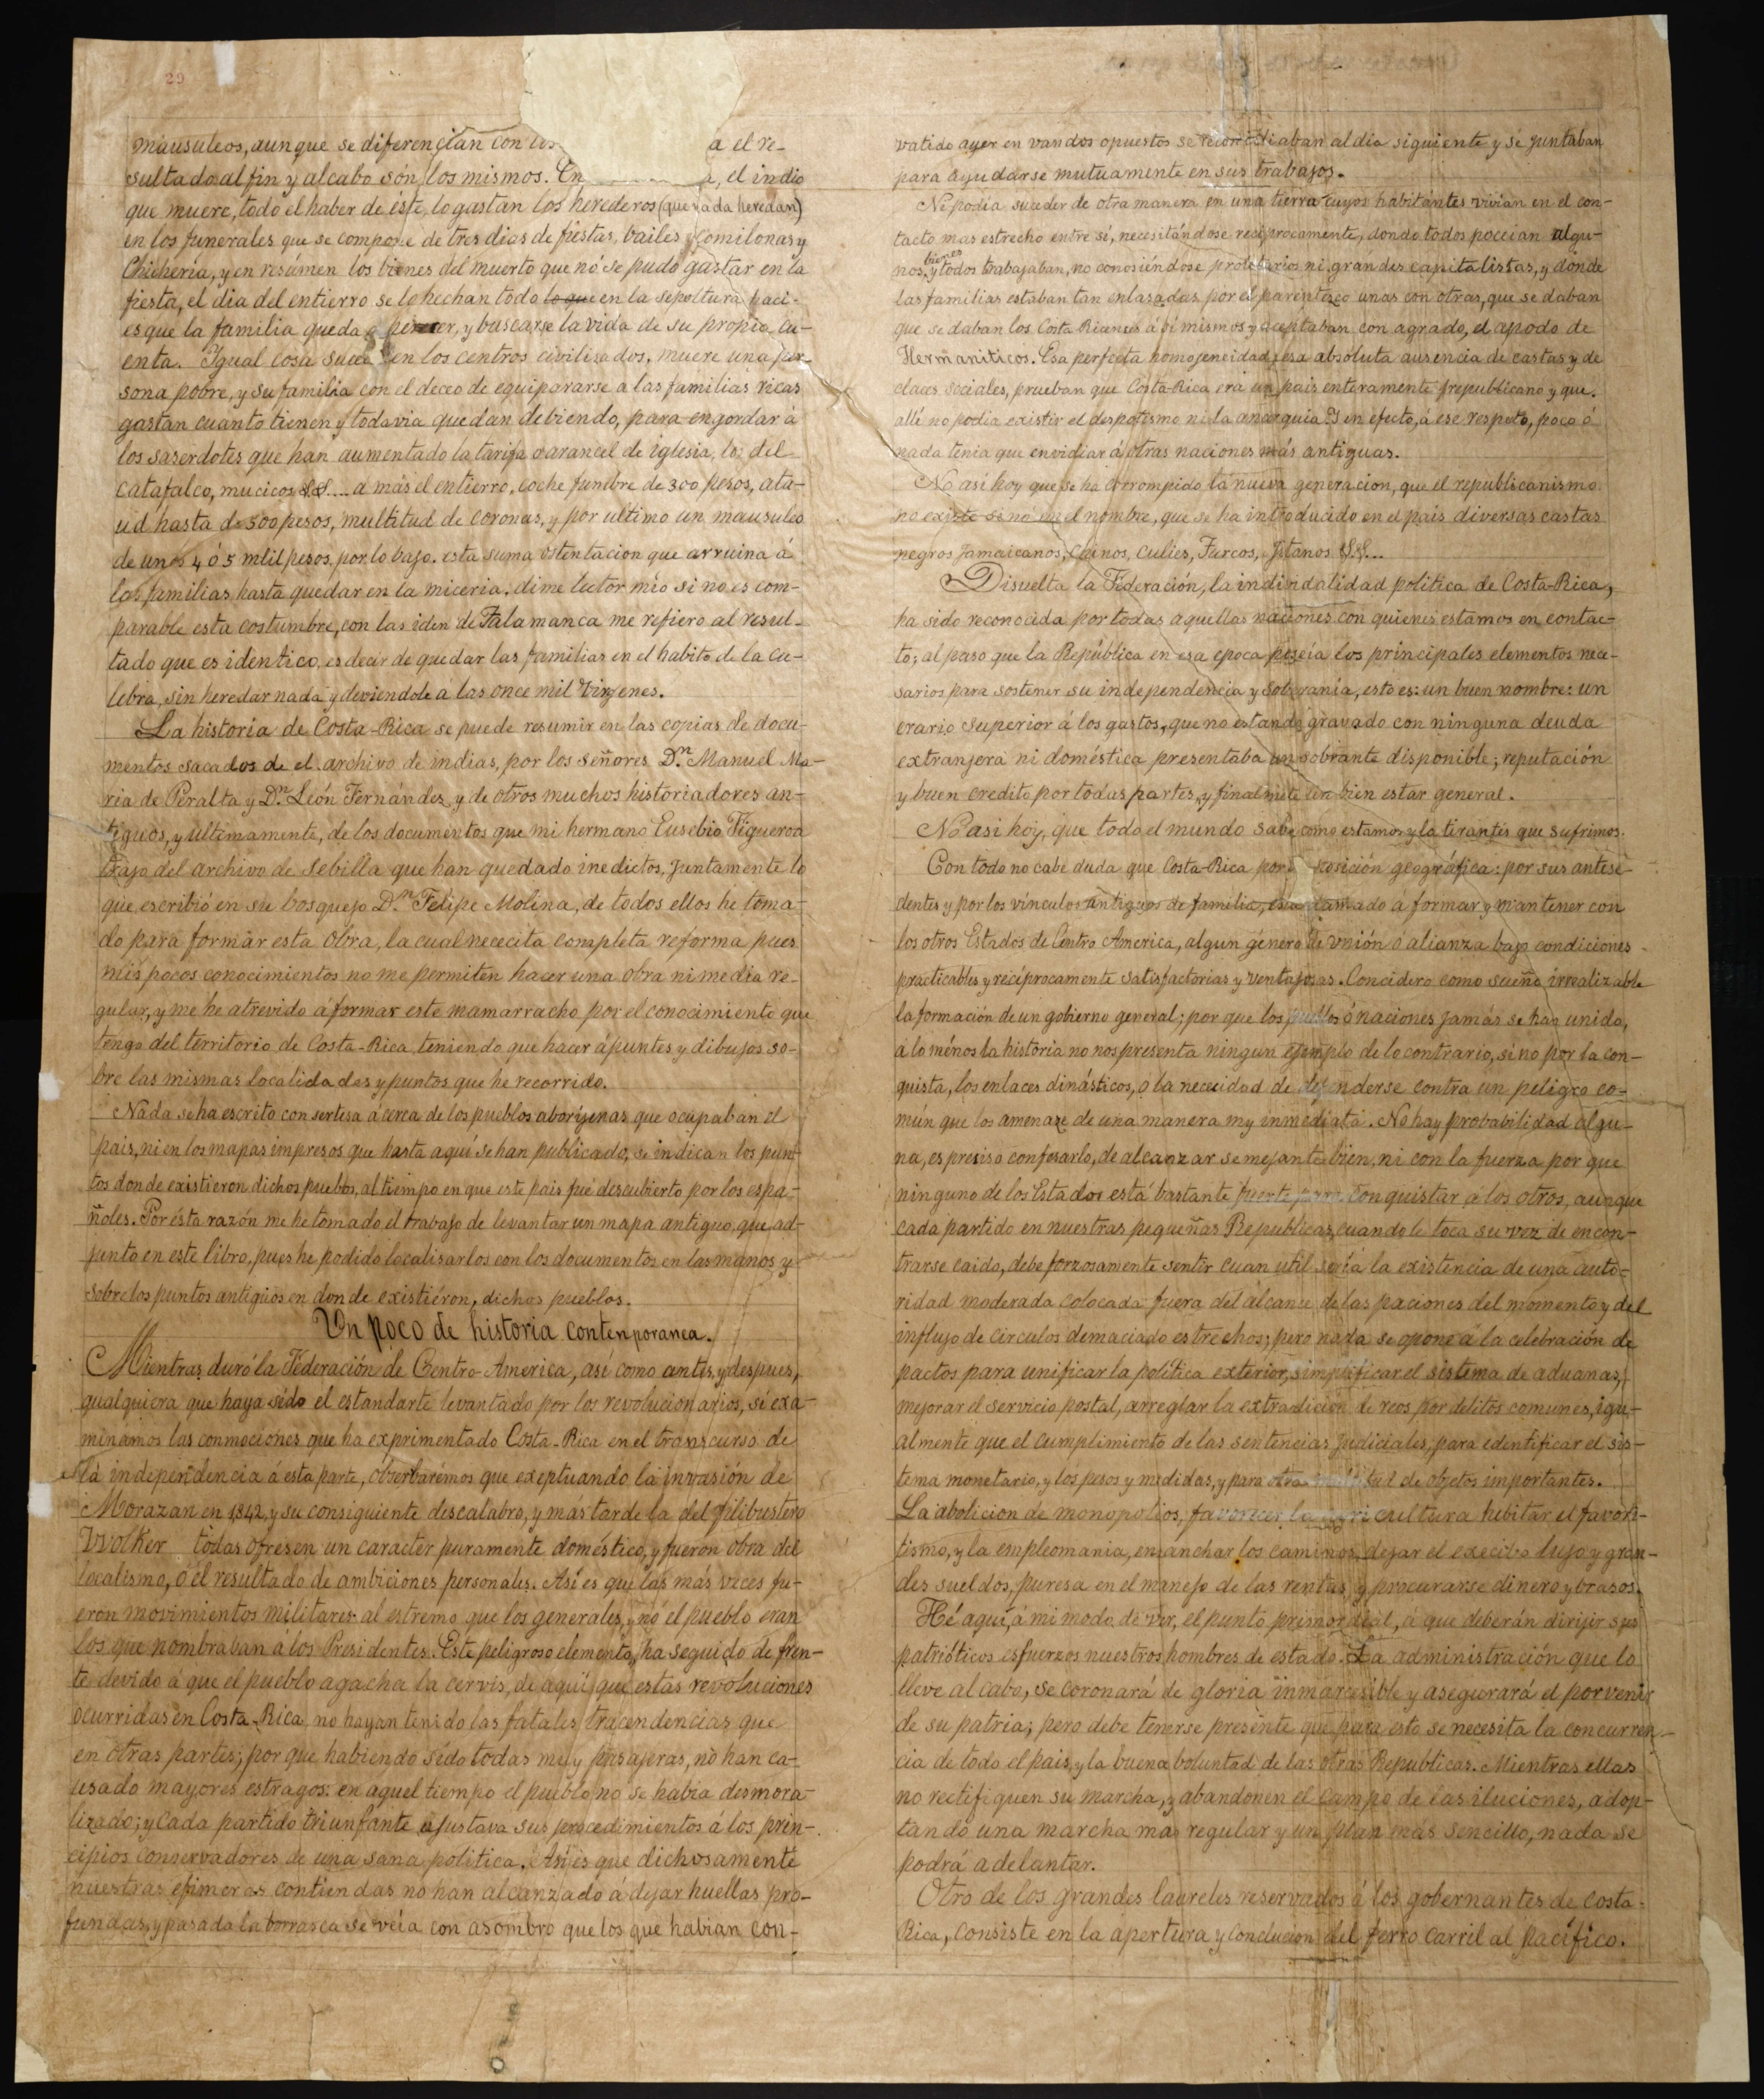 29
mausuleos, aunque se diferencian con a el re-
sultado al fin y al cabo són los mismos. En a, el indio
que muere, todo el haber de éste, lo gastan los herederos (que nada heredan)
en los funerales que se compone de tres dias de fiestas, bailes y comilonas y
Chicheria, y en resúmen los bienes del muerto que nó se pudo gastar en la
fiesta, el dia del entierro se lo hechan todo lo que en la sepoltura haci-
es que la familia queda a perecer, y buscarse la vida de su propia cu-
enta. Igual cosa suce en los centros civilisados, muere una per-
sona pobre, y su familia con el deceo de equipararse a las familias ricas
gastan cuanto tienen y todavia quedan debiendo, para engordar á
los saserdotes que han aumentado la tarifa o arancel de iglesia, los del
catafalco, mucicos &&.... a más el entierro, coche funebre de 300 pesos, ata-
ud hasta de 500 pesos, multitud de coronas, y por ultimo un mausuleo
de unos 4 ó 5 mlil pesos por lo bajo. esta suma ostentacion que arruina á
las familias hasta quedar en la miceria, dime lector mio si no es com-
parable esta costumbre, con las iden de Talamanca me refiero al resul-
tado que es identico, es decir de quedar las familias en el habito de la cu-
lebra, sin heredar nada y deviendole a las once mil virgenes.
La historia de Costa-Rica se puede resumir en las copias de docu-
mentos sacados de el archivo de indias, por los señores Dn. Manuel Ma-
ria de Peralta y Dn. León Fernández y de otros muchos historiadores an-
tiguos, y ultimamente, de los documentos que mi hermano Eusebio Figueroa
trajo del archivo de Sebilla que han quedado inedictos, Juntamente lo
que escribió en su bosquejo Dn. Felipe Molina, de todos ellos he toma-
do para formar esta obra, la cual nececita completa reforma pues
mis pocos conocimientos no me permiten hacer una obra ni media re-
gular, y me he atrevido a formar este mamarracho por el conocimiento que
tengo del territorio de Costa-Rica teniendo que hacer ápuntes y dibujos so-
bre las mismas localidades y puntos que he recorrido.
Nada se ha escrito con sertesa á cerca de los pueblos aborijenas que ocupaban el
pais, ni en los mapas impresos que hasta aquí se han publicado, se indican los pun-
tos donde existieron dichos pueblos, al tiempo en que este pais fué descubierto por los espa-
ñoles. Por ésta razón me he tomado el trabajo de levantar un mapa antiguo, que ad-
junto en este libro, pues he podido localisarlos con los documentos en las manos y
sobre los puntos antiguos en donde existiéron, dichos pueblos.
Un poco de historia contenporanea.
Mientras duró la Federación de Centro-America, así como antes, y despues,
qualquiera que haya sido el estandarte levantado por los revolucionarios, si exa-
minamos las conmociones que ha exprimentado Costa-Rica en el transcurso de
la independencia á esta parte, obserbarémos que exeptuando la invasión de
Morazan en 1842, y su consiguiente descalabro, y mas tarde la del filibustero
Wolker todas ofresen un carácter puramente doméstico, y fueron obra del
localismo, ó el resultado de ambiciones personales. Así es que las más veces fu-
eron movimientos militares al estremo que los generales, y nó el pueblo eran
los que nombraban á los Presidentes. Este peligroso elemento, ha seguido de fren-
te devido á que el pueblo agacha la cervis, de aquí que estas revoluciones
ocurridas en Costa-Rica no hayan tenido las fatales tracendencias que
en otras partes; por que habiendo sido todas muy pasajeras, no han ca-
usado mayores estragos: en aquel tiempo el pueblo no se habia desmora-
lizado; y cada partido triunfante ajustava sus procedimientos á los prin-
cipios conservadores de una sana politica. Así es que dichosamente
nuestras efimeras contiendas no han alcanzado á dejar huellas pro-
fundas, y pasada la borrasca se veía con asombro que los que habian con-
vatido ayer en vandos opuestos se reconciliaban al día siguiente y se juntaban
para ayudarse mutuamente en sus trabajos.
No podia suceder de otra manera en una tierra cuyos habitántes vivian en el con-
tacto mas estrecho entre sí, necesitándose recíprocamente, donde todos poceian algu-
nos bienes y todos trabajaban, no conosiéndose proletarios ni grandes capitalistas, y dónde
las familias estaban tan enlasadas por el parentezco unas con otras, que se daban
que se daban los Costa Ricences á si mismos y aceptaban con agrado, el apodo de
Hermaniticos. Esa perfecta homojeneidad, esa absoluta ausencia de castas y de
claces sociales, prueban que Costa-Rica era un pais enteramente republicano y que
allí no podia existir el despotismo ni la anarquía. Y en efecto, á ese respeto, poco ó
nada tenia que envidiar á otras naciones más antiguas.
No así hoy que se ha corrompido la nueva generacion, que el republicanismo
no existe si nó en el nombre, que se ha introducido en el país diversas castas
negros Jamaicanos, Chinos, Culies, Turcos, Jitanos &&...
Disuelta la Federación, la indindalidad politica de Costa-Rica,
ha sido reconocida por todas aquellas naciones con quienes estamos en contac-
to; al paso que la República en esa epoca poseía los principales elementos nece-
sarios para sostener su independencia y soberanía, esto es: un buen nombre: un
erario superior á los gastos, que no estando gravado con ninguna deuda
extranjera ni doméstica presentaba un sobrante disponible; reputación
y buen credito por todas partes, y finalmete un bien estar general.
No asi hoy, que todo el mundo sabe como estamos y la tirantés que sufrimos.
Con todo no cabe duda que Costa-Rica por posición geográfica: por sus antese-
dentes y por los vínculos antiguos de familia, está llamado á formar y mantener con
los otros Estados de Centro America, algun género de unión ó alianza bajo condiciones
practicables y recíprocamente satisfactorias y ventajosas. Concidero como sueño irrealizable
la formación de un gobierno general; por que los pueblos ó naciones jamás se han unido,
á lo ménos la historia no nos presenta ningun ejemplo de lo contrario, si no por la con-
quista, los enlaces dinásticos, ó la nececidad de defenderse contra un peligro co-
mún que los amenaze de una manera my inmediata. No hay probabilidad algu-
na, es presiso confesarlo, de alcanzar semejante bien, ni con la fuerza por que
ninguno de los Estados está bastante fuerte para conquistar á los otros, aunque
cada partido en nuestras pequeñas Republicas, cuando le toca su vez de encon-
trarse caido, debe forzosamente sentir cuan util sería la existencia de una auto-
ridad moderada colocada fuera del alcance de las paciones del momento y del
influjo de circulos demaciado estrechos; pero nada se opone á la celebración de
pactos para unificar la política exterior, simplificar el sistema de aduanas,
mejorar el servicio postal, arreglar la extradición de reos por delitos comunes, igu-
almente que el cumplimiento de las sentencias judiciales, para edentificar el sis-
tema monetario, y los pesos y medidas, y para otra multitud de objetos importantes.
La abolicion de monopolios, favorecer la agricultura hebitar el favori-
tismo, y la empleomania, ensanchar los caminos, dejar el execibo lujo y gran-
des sueldos, puresa en el manejo de las rentas y procurarse dinero y brasos.
Hé aquí, á mi modo de ver, el punto primordial, á que deberán dirijir sus
patrióticos esfuerzos nuestros hombres de estado. La administración que lo
lleve al cabo, se coronará de gloria inmarcesible y asegurará el porvenir
de su patria; pero debe tenerse presente que para esto se necesita la concurren-
cia de todo el pais, y la buena boluntad de las otras Republicas. Mientras ellas
no rectifiquen su marcha, y abandonen el campo de las iluciones, adop-
tando una marcha mas regular y un plan más sencillo, nada se
podrá adelantar.
Otro de los grandes laureles reservados á los gobernantes de Costa-
Rica, consiste en la apertura y conclucion del ferro carril al pacífico.